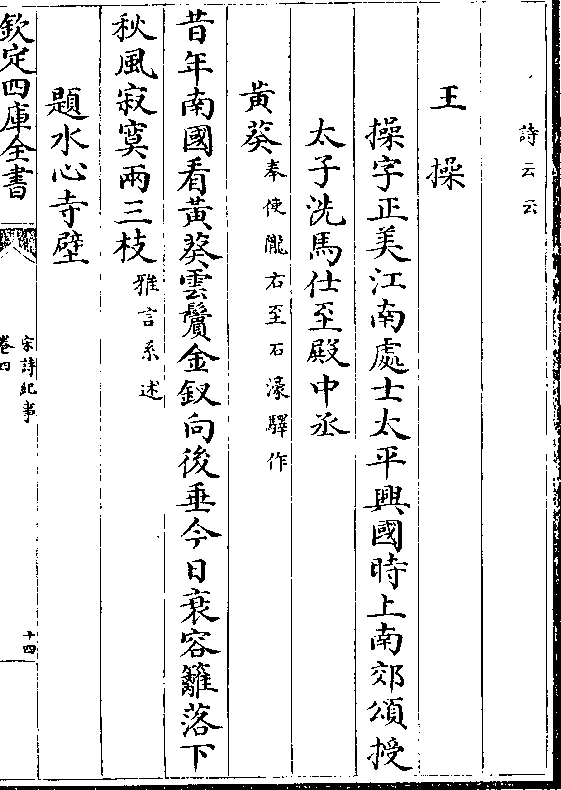 詩云云
王操
操字正美江南處士太平興國時上南郊頌授
太子洗馬仕至殿中丞
黃葵奉使隴右至石濠驛作
昔年南國看黃葵雲鬢金釵向後垂今日衰容籬落下
秋風寂寞兩三枝雅言系述
題水心寺壁
欽定四庫全書
宋詩紀事
卷四
十四